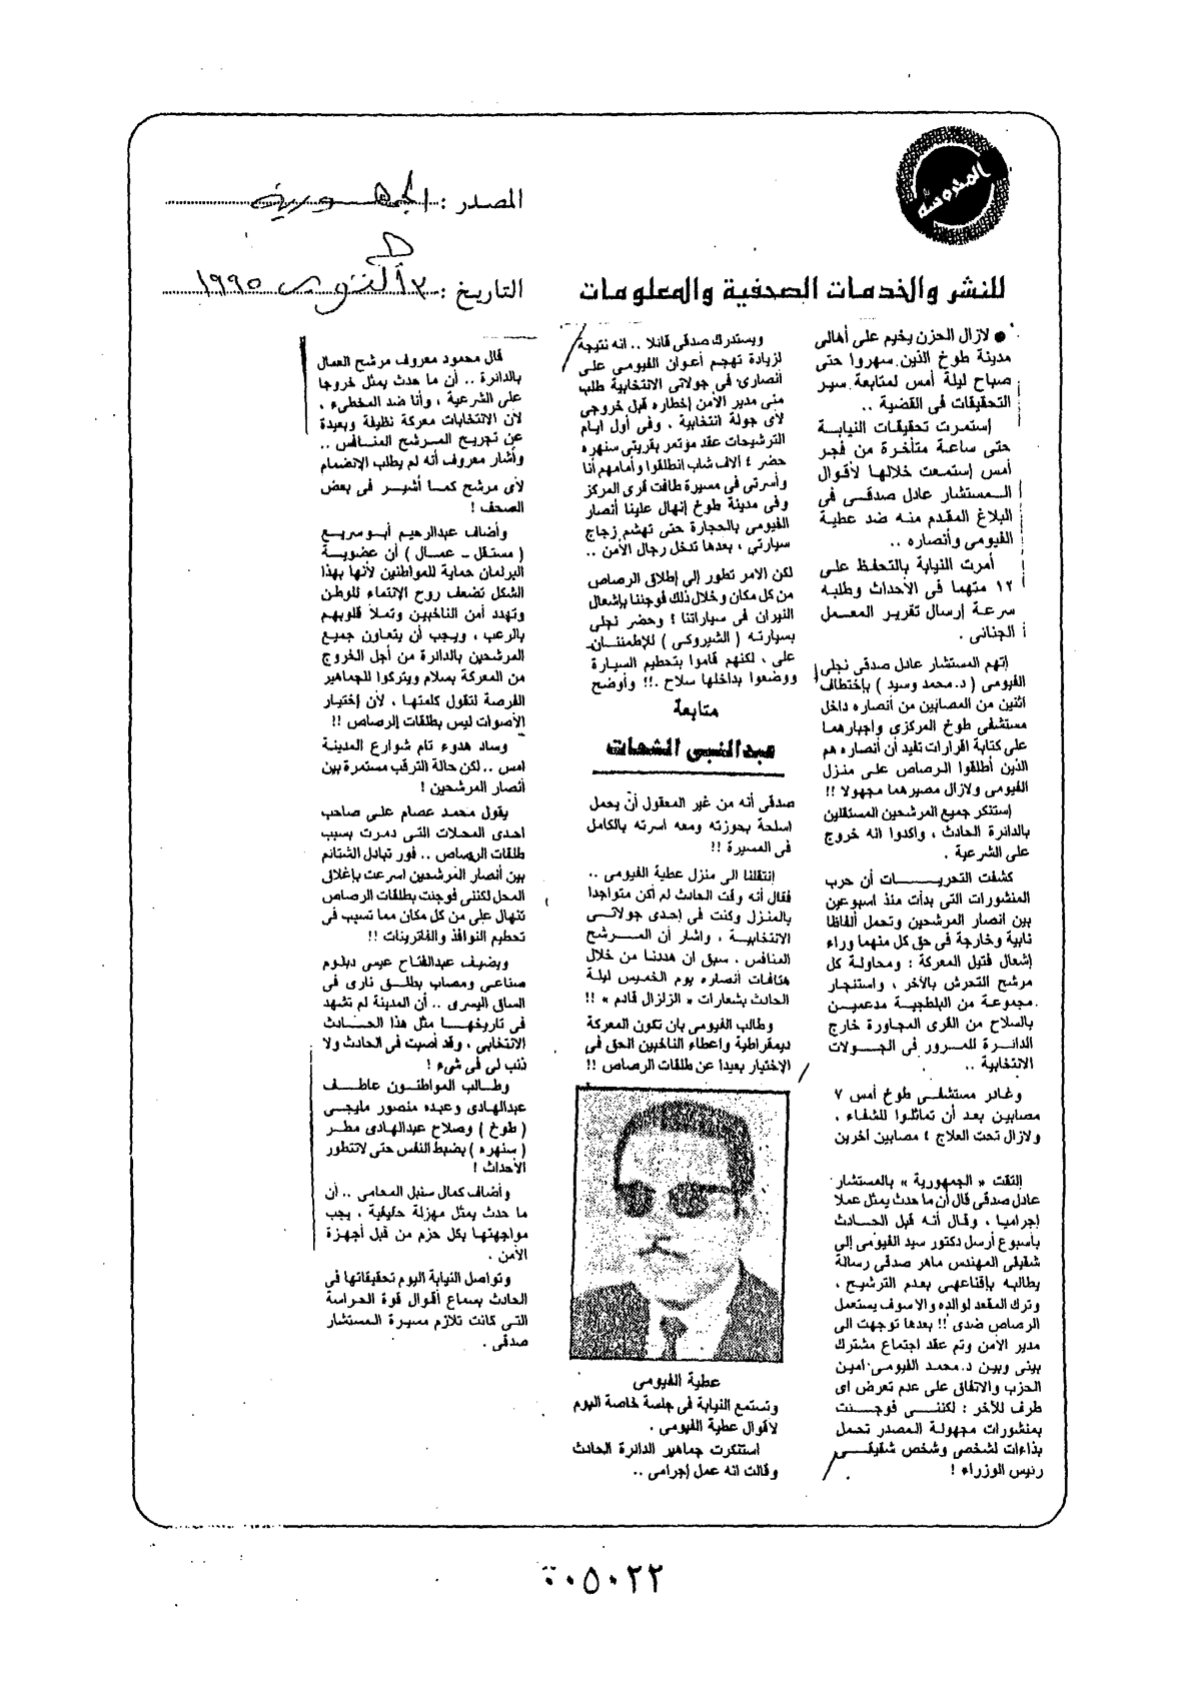 المحروسة
المصدر : الجمهورية
التاريخ : ٣ أكتوبر ١٩٩٥
للنشر والخدمات الصحفية والمعلومات
● لازال الحزن يخيم على أهالى
مدينة طوخ الذين سهروا حتى
صباح ليلة أمس لمتابعة سير
التحقيقات فى القضية ..
إستمرت تحقيقات النيابة
حتى ساعة متأخرة من فجر
أمس إستمعت خلالها لأقوال
المستشار عادل صدقى فى
البلاغ المقدم منه ضد عطية
الفيومى وأنصاره ..
أمرت النيابة بالتحفظ على
١٢ متهما فى الأحداث وطلبه
سرعة إرسال تقرير المعمل
الجنائى .
إتهم المستشار عادل صدقى نجلى
الفيومى ( د.محمد وسيد ) بإختطاف
اثنين من المصابين من أنصاره داخل
مستشفى طوخ المركزى واجبارهما
على كتابة اقرارات تفيد أن أنصاره هم
الذين أطلقوا الرصاص على منزل
الفيومى ولازال مصيرهما مجهولا !!
إستنكر جميع المرشحين المستقلين
بالدائرة الحادث ، واكدوا انه خروج
على الشرعية .
كشفت التحريات أن حرب
المنشورات التى بدأت منذ اسبوعين
بين انصار المرشحين وتحمل ألفاظا
نابية وخارجة فى حق كل منهما وراء
إشعال فتيل المعركة ؛ ومحاولة كل
مرشح التحرش بالآخر ، واستنجار
مجموعة من البلطجية مدعمين
بالسلاح من القرى المجاورة خارج
الدائرة للمرور فى الجولات
الانتخابية ..
وغادر مستشفى طوخ أمس ٧
مصابين بعد أن تماثلوا للشفاء ،
ولازال تحت العلاج ٤ مصابين آخرين
إلتقت « الجمهورية » بالمستشار
عادل صدقى قال أن ما حدث يمثل عملا
إجراميا ، وقال أنه قبل الحادث
بأسبوع أرسل دكتور سيد الفيومى إلى
شقيقى المهندس ماهر صدقى رسالة
يطالبه بإقناعهى بعدم الترشيح ،
وترك المقعد لوالده والا سوف يستعمل
الرصاص ضدى !! بعدها توجهت الى
مدير الأمن وتم عقد اجتماع مشترك
بينى وبين د.محمد الفيومى أمين
الحزب والاتفاق على عدم تعرض اى
طرف للآخر ؛ لكننى فوجئت
بمنشورات مجهولة المصدر تحمل
بذاءات لشخصى وشخص شقيقى
رئيس الوزراء !
ويستدرك صدقى قائلا .. انه نتيجة
لزيادة تهجم أعوان الفيومى على
أنصارى فى جولاتى الانتخابية طلب
منى مدير الأمن إخطاره قبل خروجى
لأى جولة انتخابية ، وفى أول ايام
الترشيحات عقد مؤتمر بقريتى سنهره
حضر ٤ الاف شاب انطلقوا وأمامهم أنا
وأسرتى فى مسيرة طافت قرى المركز
وفى مدينة طوخ إنهال علينا أنصار
الفيومى بالحجارة حتى تهشم زجاج
سيارتى ، بعدها تدخل رجال الأمن ..
لكن الامر تطور إلى إطلاق الرصاص
من كل مكان وخلال ذلك فوجئنا بإشعال
النيران فى سياراتنا ! وحضر نجلى
بسيارته ( الشيروكى ) للإطمئنان
على ، لكنهم قاموا بتحطيم السيارة
ووضعوا بداخلها سلاح .!! وأوضح
متابعة
عبدالنبى الشحات
صدقى أنه من غير المعقول أن يحمل
اسلحة بحوزته ومعه اسرته بالكامل
فى المسيرة !!
إنتقلنا الى منزل عطية الفيومى ..
فقال أنه وقت الحادث لم أكن متواجدا
بالمنزل وكنت فى إحدى جولاتى
الانتخابية ، واشار أن المرشح
المنافس . سبق ان هددنا من خلال
هتافات أنصاره يوم الخميس ليلة
الحادث بشعارات « الزلزال قادم » !!
وطالب الفيومى بان تكون المعركة
ديمقراطية وإعطاء الناخبين الحق فى
الإختيار بعيدا عن طلقات الرصاص !!
عطية الفيومى
وتستمع النيابة فى جلسة خاصة اليوم
لاقوال عطية الفيومى .
استنكرت جماهير الدائرة الحادث
وقالت انه عمل إجرامى ..
قال محمود معروف مرشح العمال
بالدائرة .. أن ما حدث يمثل خروجا
على الشرعية ، وأنا ضد المخطىء ،
لأن الانتخابات معركة نظيفة وبعيدة
عن تجريح المرشح المنافس ..
وأشار معروف أنه لم يطلب الإنضمام
لأى مرشح كما أشير فى بعض
الصحف !
وأضاف عبدالرحيم أبو سريع
( مستقل ـ عمال ) أن عضوية
البرلمان حماية للمواطنين لأنها بهذا
الشكل تضعف روح الإنتماء للوطن
وتهدد أمن الناخبين وتملأ قلوبهم
بالرعب ، ويجب أن يتعاون جميع
المرشحين بالدائرة من أجل الخروج
من المعركة بسلام ويتركوا للجماهير
الفرصة لتقول كلمتها ، لأن إختيار
الأصوات ليس بطلقات الرصاص !!
وساد هدوء تام شوارع المدينة
امس .. لكن حالة الترقب مستمرة بين
أنصار المرشحين !
يقول محمد عصام على صاحب
احدى المحلات التى دمرت بسبب
طلقات الرصاص .. فور تبادل الشتائم
بين أنصار المرشحين اسرعت بإغلاق
المحل لكننى فوجئت بطلقات الرصاص
تنهال على من كل مكان مما تسبب فى
تحطيم النوافذ والفاترينات !!
ويضيف عبدالفتاح عيسى دبلوم
صناعى ومصاب بطلق نارى فى
الساق اليسرى .. أن المدينة لم تشهد
فى تاريخها مثل هذا الحادث
الانتخابى ، وقد أصبت فى الحادث ولا
ذنب لى فى شىء !
وطالب المواطنون عاطف
عبدالهادى وعبده منصور مليجى
( طوخ ) وصلاح عبدالهادى مطر
( سنهره ) بضبط النفس حتى لاتتطور
الأحداث !
وأضاف كمال سنبل المحامى .. أن
ما حدث يمثل مهزلة حقيقية ، يجب
مواجهتها بكل حزم من قبل أجهزة
الأمن .
وتواصل النيابة اليوم تحقيقاتها فى
الحادث بسماع أقوال قوة الحراسة
التى كانت تلازم مسيرة المستشار
صدقى .
٠٥٠٢٢